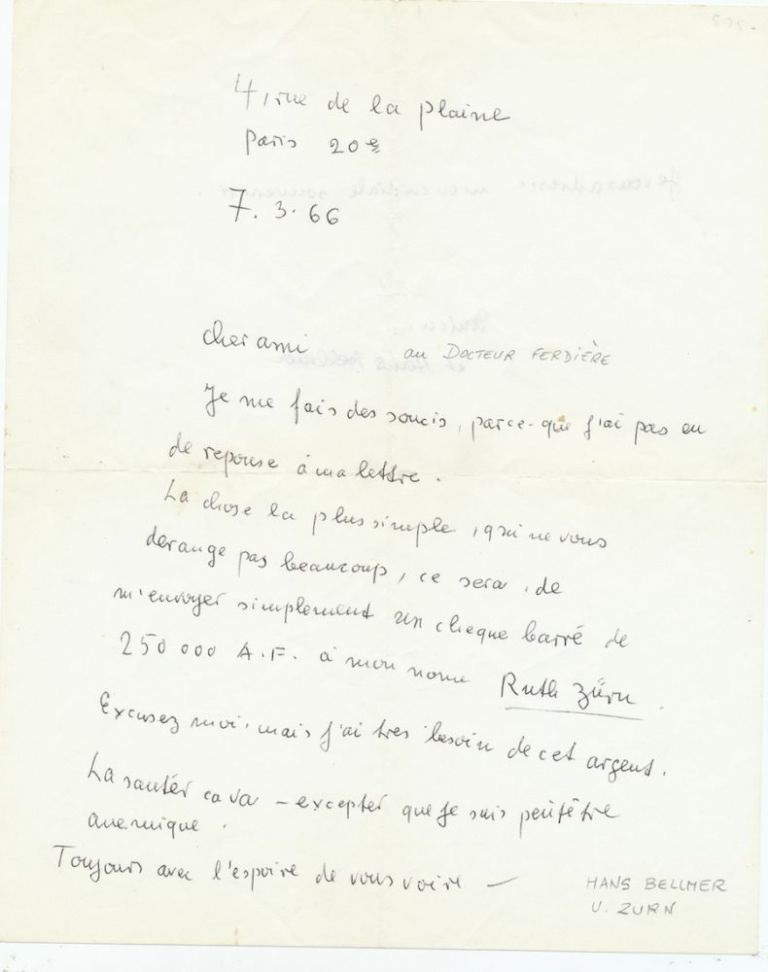 4, rue de la plaine
Paris 20e
7. 3. 66
cher ami au DOCTEUR FERDIÈRE
Je me fais des soucis, parce-que j'ai pas eu
de reponse à ma lettre.
La chose la plus simple, qui ne vous
derange pas beaucoup, ce sera, de
m'envoyer simplement un cheque barré de
250 000 A.F. à mon nome Ruth Zürn.
Excusez moi, mais j'ai tres besoin de cet argent.
La santér ca va – excepter que je suis peütêtre
anemique.
Toujours avec l'espoire de vous voire —
HANS BELLMER
U. ZURN